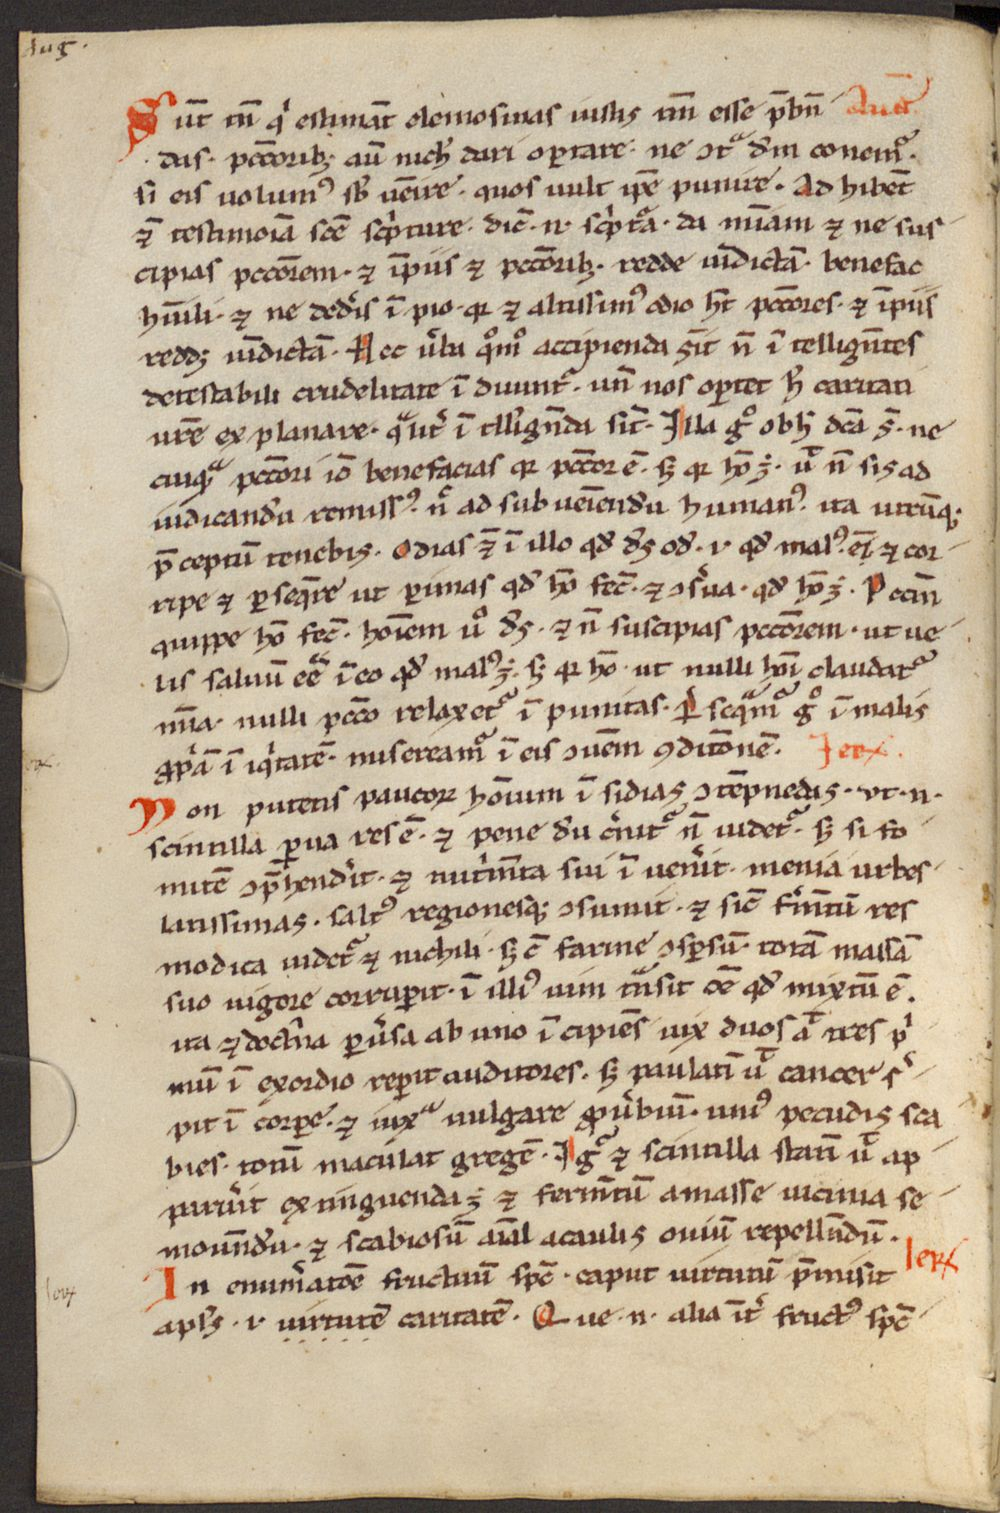 Aug.
Sūt tn̄ q' estimāt elemosinas iustis tm̄ esse p̄bn̄ Aug.
das. pccōrib; aū nich' dari oportare. ne ɔtᵃ dm̄ conem᷑.
si eis uolum⁹ sb' uēire. quos uult ip̄e punire. Ad hibēt
⁊ testimoīa scē sc'pture. dic̄ .n. sc'ptᵃ. da mīam ⁊ ne sus
cipias pccōrem. ⁊ īpiis ⁊ pccōrib;. redde uīdictā. benefac
hūili. ⁊ ne ded'is ī pio. qr ⁊ altissim⁹ odio h̄t pccōres. ⁊ īpiis
redd; uīdictā. Hec u'ba qºmº accipienda s̄it n̄ ī telligētes
detestabili crudelitate ī duunt᷑. un̄ nos oportet h̄ caritati
ur̄e explanare. qᵃlit' ī tlligēda sīt. Illa gº ob h' dc̄a s̄. ne
cuiqᵃ pccōri iō benefacias qr pccōr ē. s; qr hō ē. ut̄ n̄ sis ad
iudicandū remiss⁹. n' ad subueīendū human⁹. ita utrūq;
p̄ceptū tenebis. Odias ⁊ ī illo qd' ds̄ od'. .i. qd' mal⁹. ei ⁊ cor
ripe ⁊ p̱seq̄re ut p̱imas qd' hō fec̄. ⁊ ɔs'ua. qd' hō ē. Pccm̄
quippe hō fec̄. hoīem uº ds̄. ⁊ n̄ suscipias pccōrem. ut ue
lis saluū ee̅ ī eo qd' mal⁹ ē. s; qr hō. ut nulli hoī claudat᷑
mīa. nulli pccō relaxet᷑ ī punitas. P̱seqᵃm᷑ gº ī malis
p̱p̄ā ī iq'tatē. miseream᷑ ī eis ɔūem ꝯditōnē. Ierx.
Non putetis paucoꝝ hoīum ī sidias ɔtēpnedas. ut .n.
scintilla p̱ua res ē. ⁊ pene dū c'nit᷑ n̄ uidet᷑. s; si fo
mitē ɔp̄hend'it. ⁊ nut'mēta sui ī uen'it. menia urbes
latissimas. salt⁹ regionesq; ɔsumit. ⁊ sic̄ f'mētū res
modica uidet᷑ ⁊ nichili. s; c̄ farine ɔsp̱sū. totā massā
suo uigore corrup̱it. ī illi⁹ uim tᵃnsit oē qd' mixtū ē.
ita ⁊ doct'na p̱u'sa ab uno ī cipiēs uix duos aᵗ tres p'
mū ī exordio rep̱it auditores. s; paulatī uᵗ cancer s'
pit ī corpe. ⁊ iuxᵃ uulgare p̱u'biū. uni⁹ pecudis sca
bies. totū maculat gregē. Ig᷑ ⁊ scintilla statī uᵗ ap
paru'it extinguenda ē ⁊ fermētū a masse uicinia se
mouēdū. ⁊ scabiosū aīal a caulis ouiū repellēdū.
In enum'atōe fructuū spc̄. caput uirtutū p̄misit Ierx
apls̄. .i. uirtutē caritatē. Que .n. alia īt' fruct⁹ spc̄